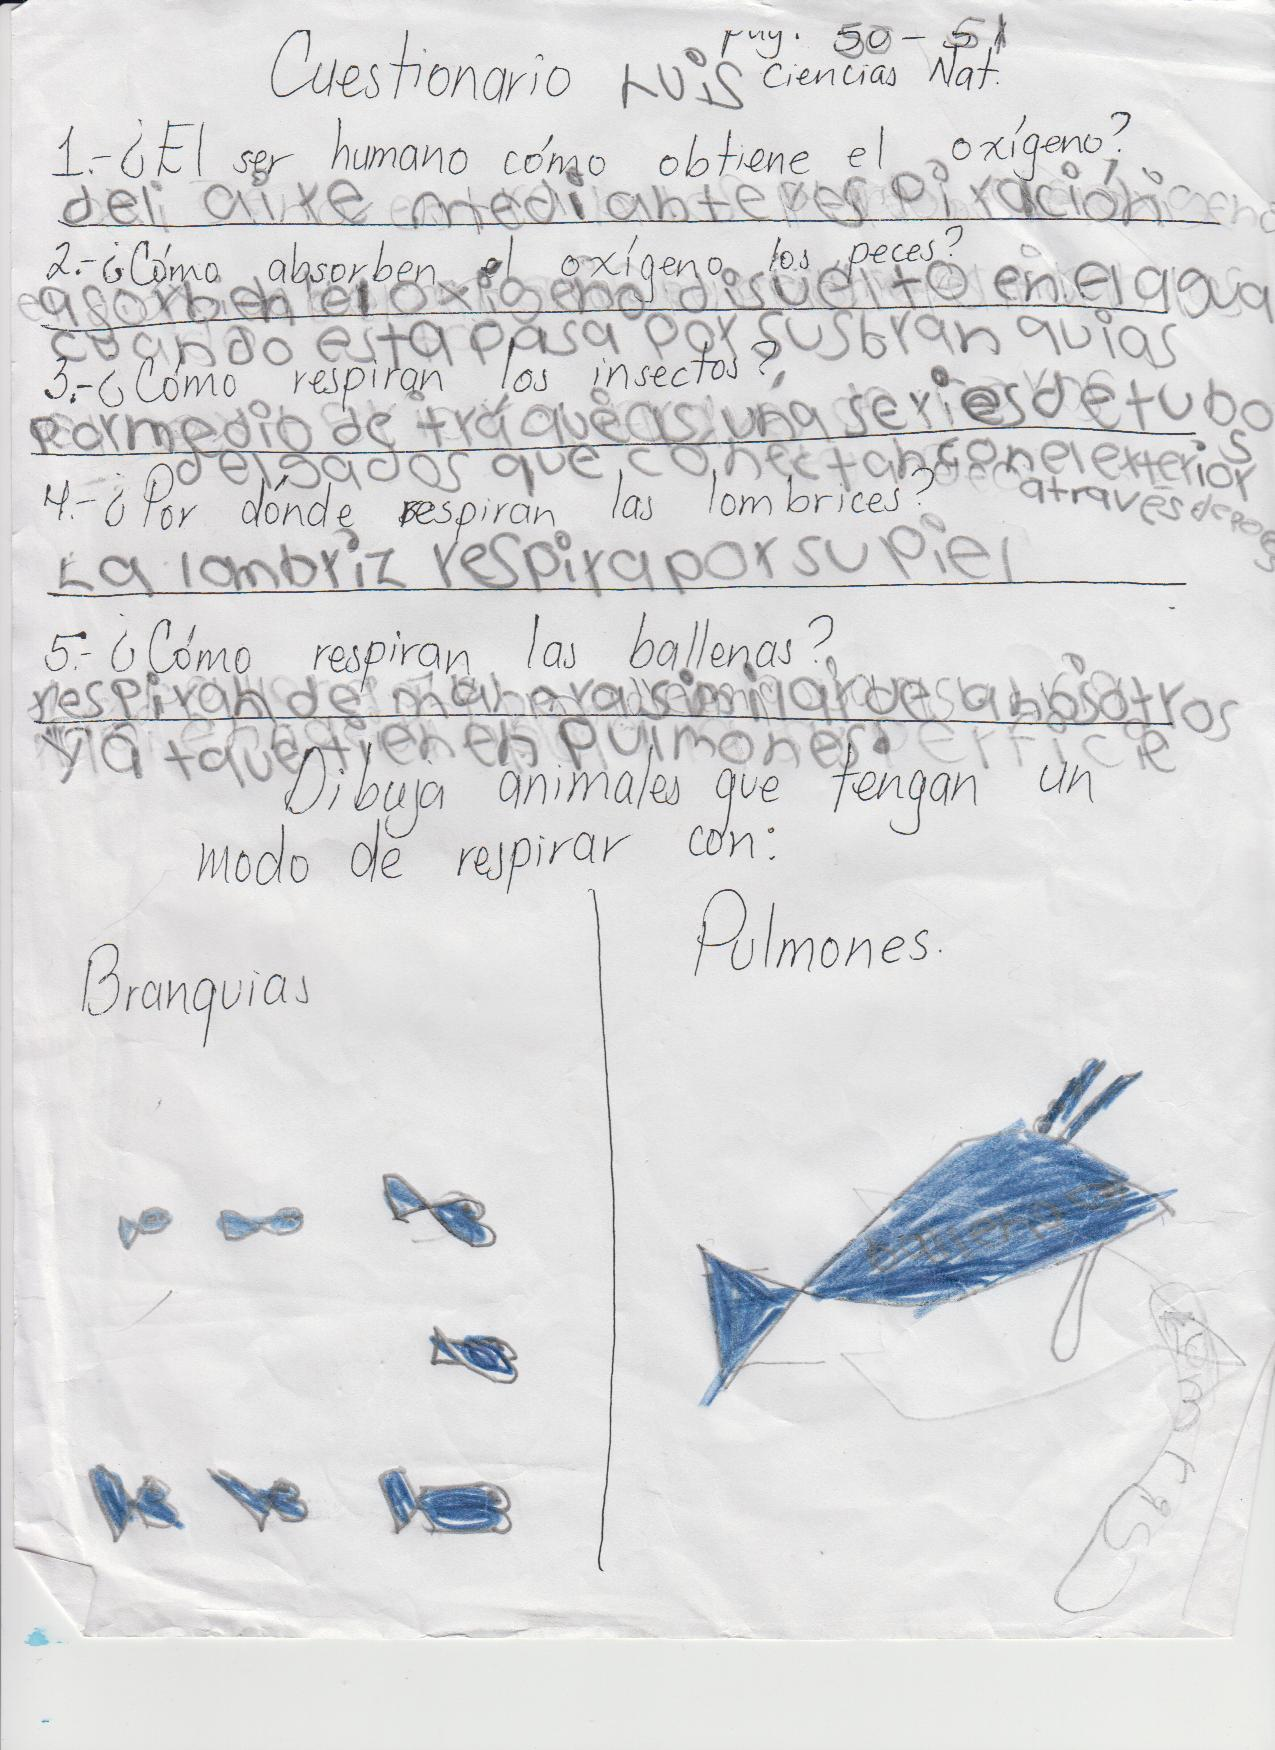 pag. 50 - 51
Cuestionario LUIS Ciencias Nat.
1.- ¿El ser humano cómo obtiene el oxígeno?
deli aire mediante respiración
2.- ¿Cómo absorben el oxígeno los peces?
asorben el oxigeno disuelto en el agua
cuando esta pasa por sus branquias
3.- ¿Cómo respiran los insectos?
por medio de tráqueas una series de tubos
delgados que conectan con el exterior
através de
4.- ¿Por dónde respiran las lombrices?
La lombriz respira por su piel
5.- ¿Cómo respiran las ballenas?
respiran de manera similar de a nosotros
ya que tienen pulmones.
Dibuja animales que tengan un
modo de respirar con:
Branquias
Pulmones.
ballenas